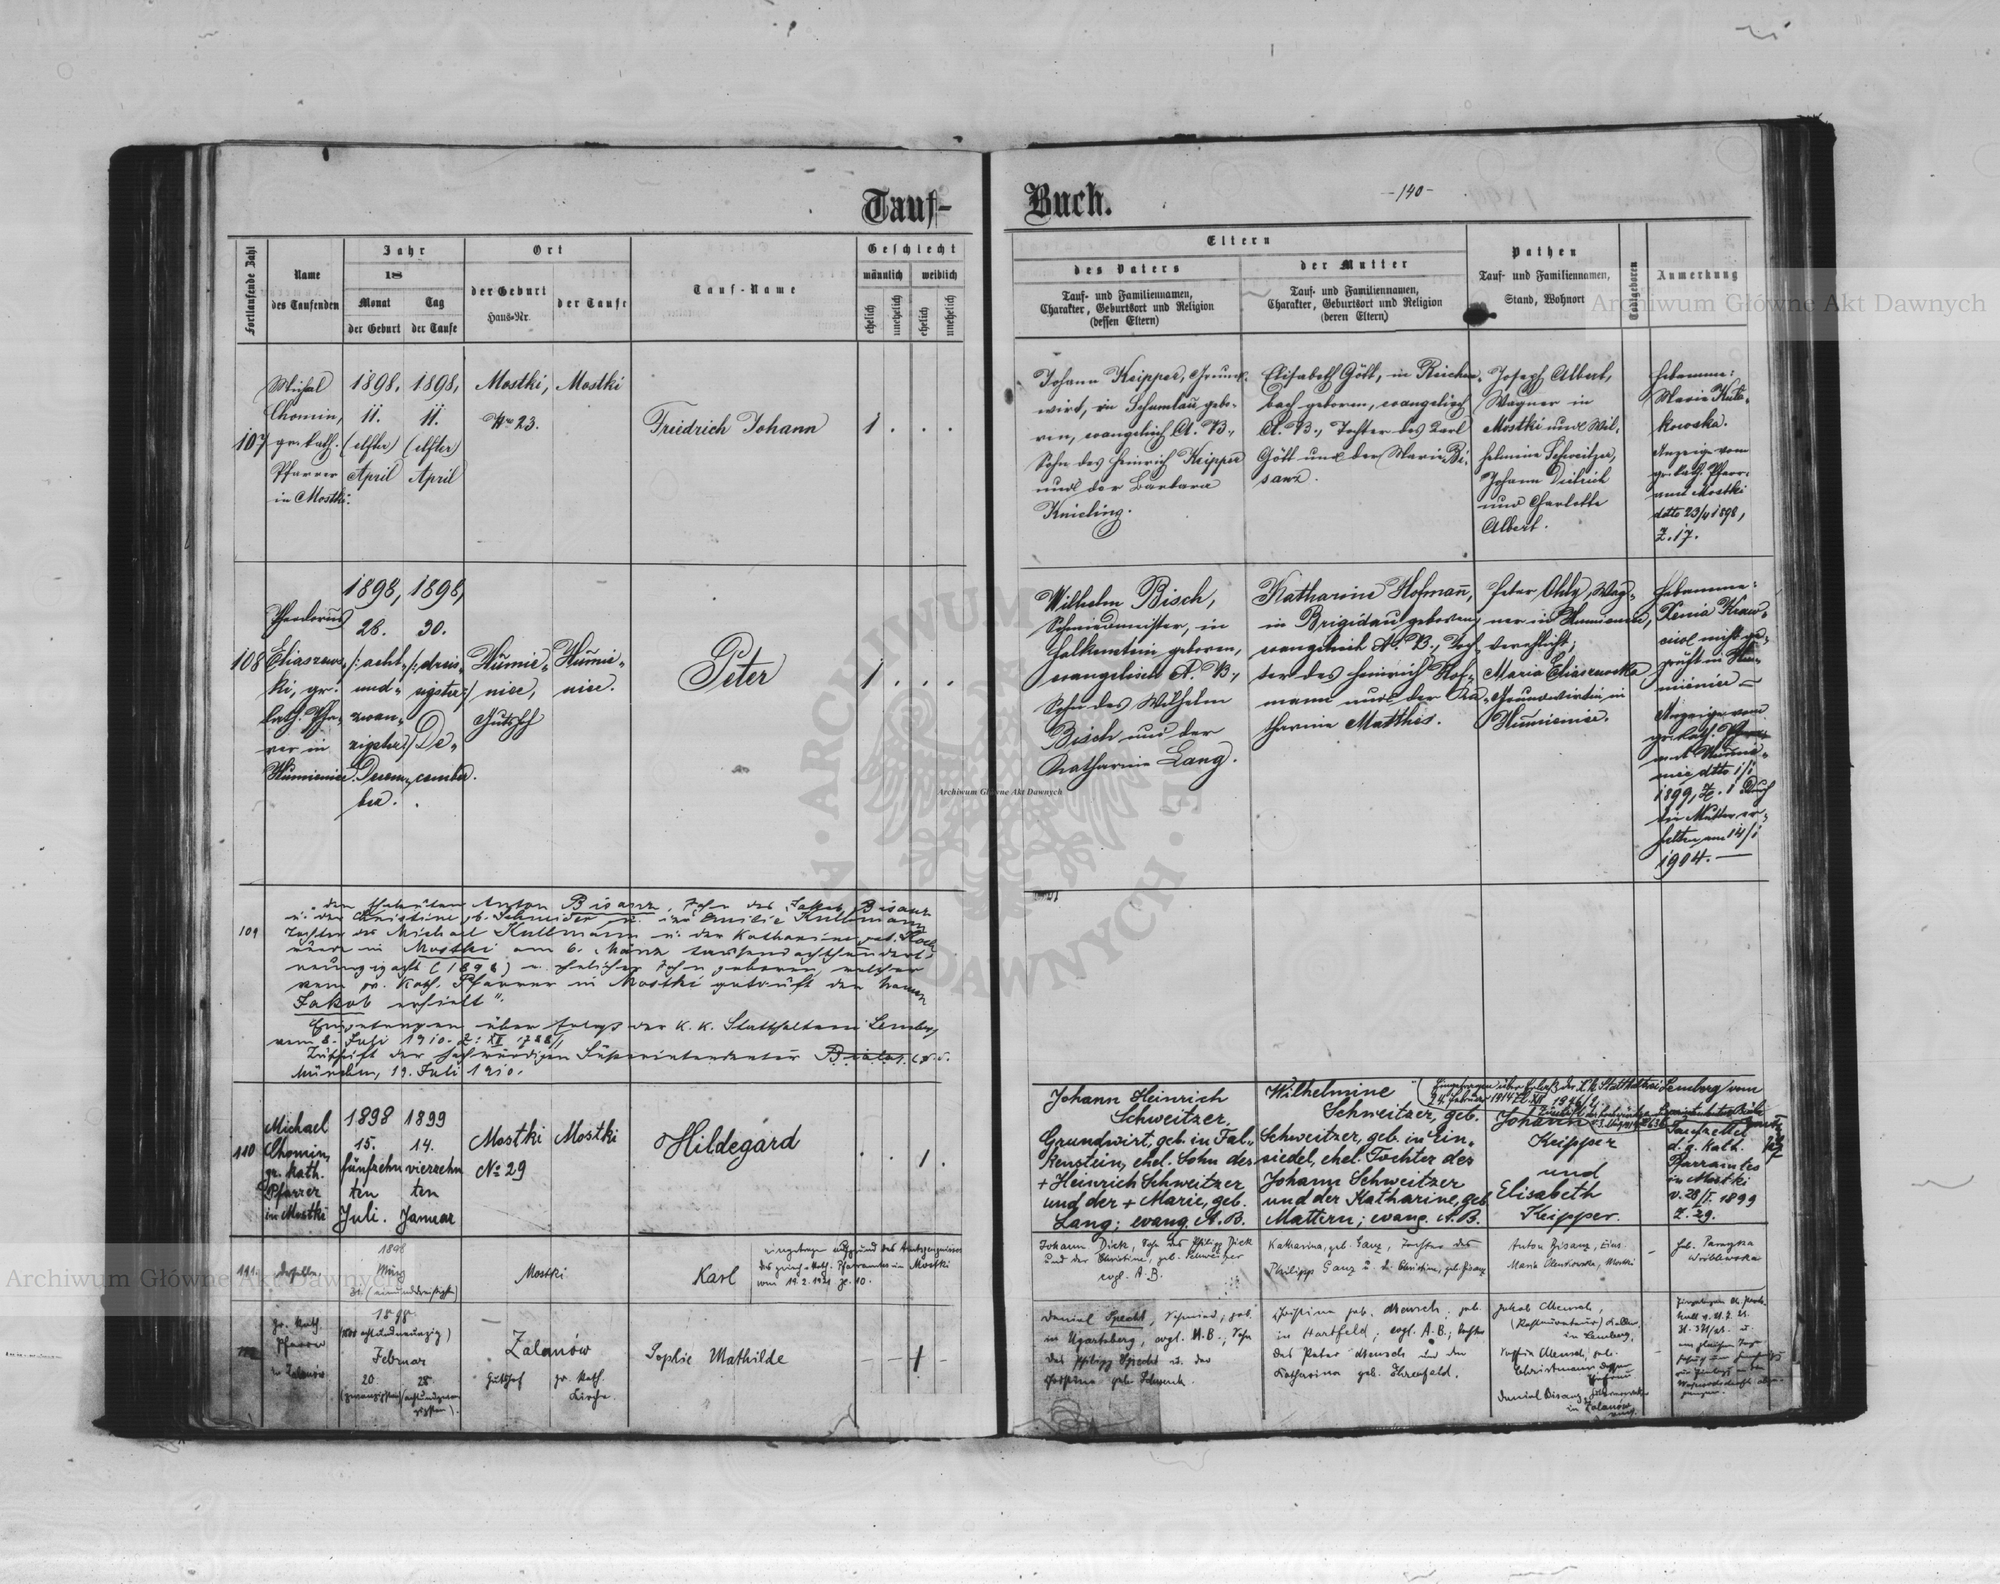 Tauf-
Buch.
-140-
Fortlaufende Zahl
Name
des Taufenden
Jahr
18
Monat
der Geburt
Tag
der Taufe
Ort
der Geburt
Haus-Nr.
der Taufe
Tauf-Name
Geschlecht
männlich
weiblich
ehelich
unehelich
ehelich
unehelich
Eltern
des Vaters
Tauf- und Familiennamen,
Charakter, Geburtsort und Religion
(dessen Eltern)
der Mutter
Tauf- und Familiennamen,
Charakter, Geburtsort und Religion
(deren Eltern)
Pathen
Tauf- und Familiennamen,
Stand, Wohnort
Todtgeboren
Anmerkung
107
Michal
Chomin,
gr. kath.
Pfarrer
in Mostki.
1898,
11.
(elfter)
April
1898,
11.
(elfter)
April
Mostki,
Nro 23.
Mostki
Friedrich Johann
1 . . .
Johann Keipper, Grund-
wirt, in Schumlau gebo-
ren, evangelisch A. B.,
Sohn des Heinrich Keipper
und der Barbara
Knieling.
Elisabeth Gött, in Reichen-
bach geboren, evangelisch
A. B., Tochter des Karl
Gött und der Marie Bi-
sanz.
Joseph Albert,
Wagner in
Mostki und Wil-
helmine Schweitzer,
Johann Dietrich
und Charlotte
Albert.
Hebamme:
Maria Kuts-
kowska.
Anzeige vom
gr. kath. Pfarr-
amt Mostki
dtto 23/4 1898,
Z. 17.
108
Theodorus
Eliaszews-
ki, gr.
kath. Pfar-
rer in
Humienice.
1898,
28.
/: acht-
und-
zwan-
zigster:/
Decem-
ber.
1898,
30.
/: dreis-
sigster:/
De-
cember.
Humie-
nice,
Gutshof
Humie-
nice.
Peter
1 . . .
Wilhelm Bisch,
Schmiedmeister, in
Falkenstein geboren,
evangelisch A. B.,
Sohn des Wilhelm
Bisch und der
Katharine Lang.
Katharine Hofmann,
in Brigidau geboren,
evangelisch A. B., Toch-
ter des Heinrich Hof-
mann und der Ka-
tharine Matthis.
Peter Ohly, Wag-
ner in Humienice,
verehelicht;
Maria Eliaszewska
Grundwirtin in
Humienice.
Hebamme:
Xenia Kraw-
ciw nicht ge-
prüft in Hu-
mienice —
Anzeige vom
gr. kath. Pfarr-
amt Humie-
nice dtto 1/1
1899, Z. 1 Durch
die Mutter er-
halten am 14/1
1904. —
109
den Eheleuten Anton Bisanz, Sohn des Jakob Bisanz
u. der Christine, geb. Schneider u. der Emilie Kullmann
Tochter des Michael Kullmann u. der Katharine, geb. Koch
wurde in Mostki am 6. März tausendachthundert-
neunzigacht (1898) ein ehelicher Sohn geboren, welcher
vom gr. kath. Pfarrer in Mostki getauft den Namen
Jakob erhielt".
Eingetragen über Erlass der k. k. Statthalterei Lemberg
vom 8. Juli 1910. Z: XII
Zuschrift der hochwürdigen Superintendentur Biala
München, 19. Juli 1910.
110
Michael
Chomin,
gr. kath.
Pfarrer
in Mostki
1898
15.
fünfzehn
ten
Juli.
1899
14.
vierzehn
ten
Januar
Mostki
No 29
Mostki
Hildegard
. . 1 .
Johann Heinrich
Schweitzer,
Grundwirt, geb. in Fal-
kenstein, ehel. Sohn des
+ Heinrich Schweitzer
und der + Marie, geb.
Lang; evang. A. B.
Wilhelmine
Schweitzer, geb.
Schweitzer, geb. in Ein-
siedel, ehel. Tochter des
Johann Schweitzer
und der Katharine, geb
Mattern; evang. A. B.
Eingetragen über Erlass der k. k. Statthalterei Lemberg vom
24. Februar 1914 Z. XII
Johann
Keipper
und
Elisabeth
Keipper.
Taufzettel
d. g. kath.
Pfarramtes
in Mostki
v. 28/I. 1899
Z. 29.
111.
derselbe
1898
März
31. (einunddreißigst)
Mostki
Karl
eingetragen aufgrund des Amtszeugnisses
des griech. kath. Pfarramtes in Mostki
vom 19.2.1921 Zl. 10.
Johann Dick, Sohn des Philipp Dick
und der Christine, geb. Schweitzer
evgl. A. B.
Katharina, geb. Ganz, Tochter des
Philipp Ganz u. d. Christine, geb. Bisanz
Anton Bisanz,
Maria Mostki
Heb. Paraszka
Wróblewska
gr. kath.
Pfarrer
in Zalanów
1898.
achtundneunzig)
Februar
20
(zwanzigsten)
28.
(achtundzwan
zigsten).
Zalanów
Gutshof
gr. kath.
Kirche.
Sophie Mathilde
— — 1 —
Daniel Specht, Schmied, geb.
in Ugartsberg, evgl. A. B.; Sohn
des Philipp Specht u. der
Josefine geb. Schwenk.
Christina geb. Mensch; geb.
in Hartfeld; evgl. A. B.; Tochter
des Peter Mensch und der
Katharina geb. Ehrenfeld.
Jakob Mensch,
(Restaurateur)
in Lemberg,
Mensch, geb.
Christmann dessen
Ehefrau
Daniel Bisanz,
in Zalanów
Archiwum Główne Akt Dawnych
Archiwum Główne Akt Dawnych
Archiwum Główne Akt Dawnych
ARCHIWUM
AKT DAWNYCH